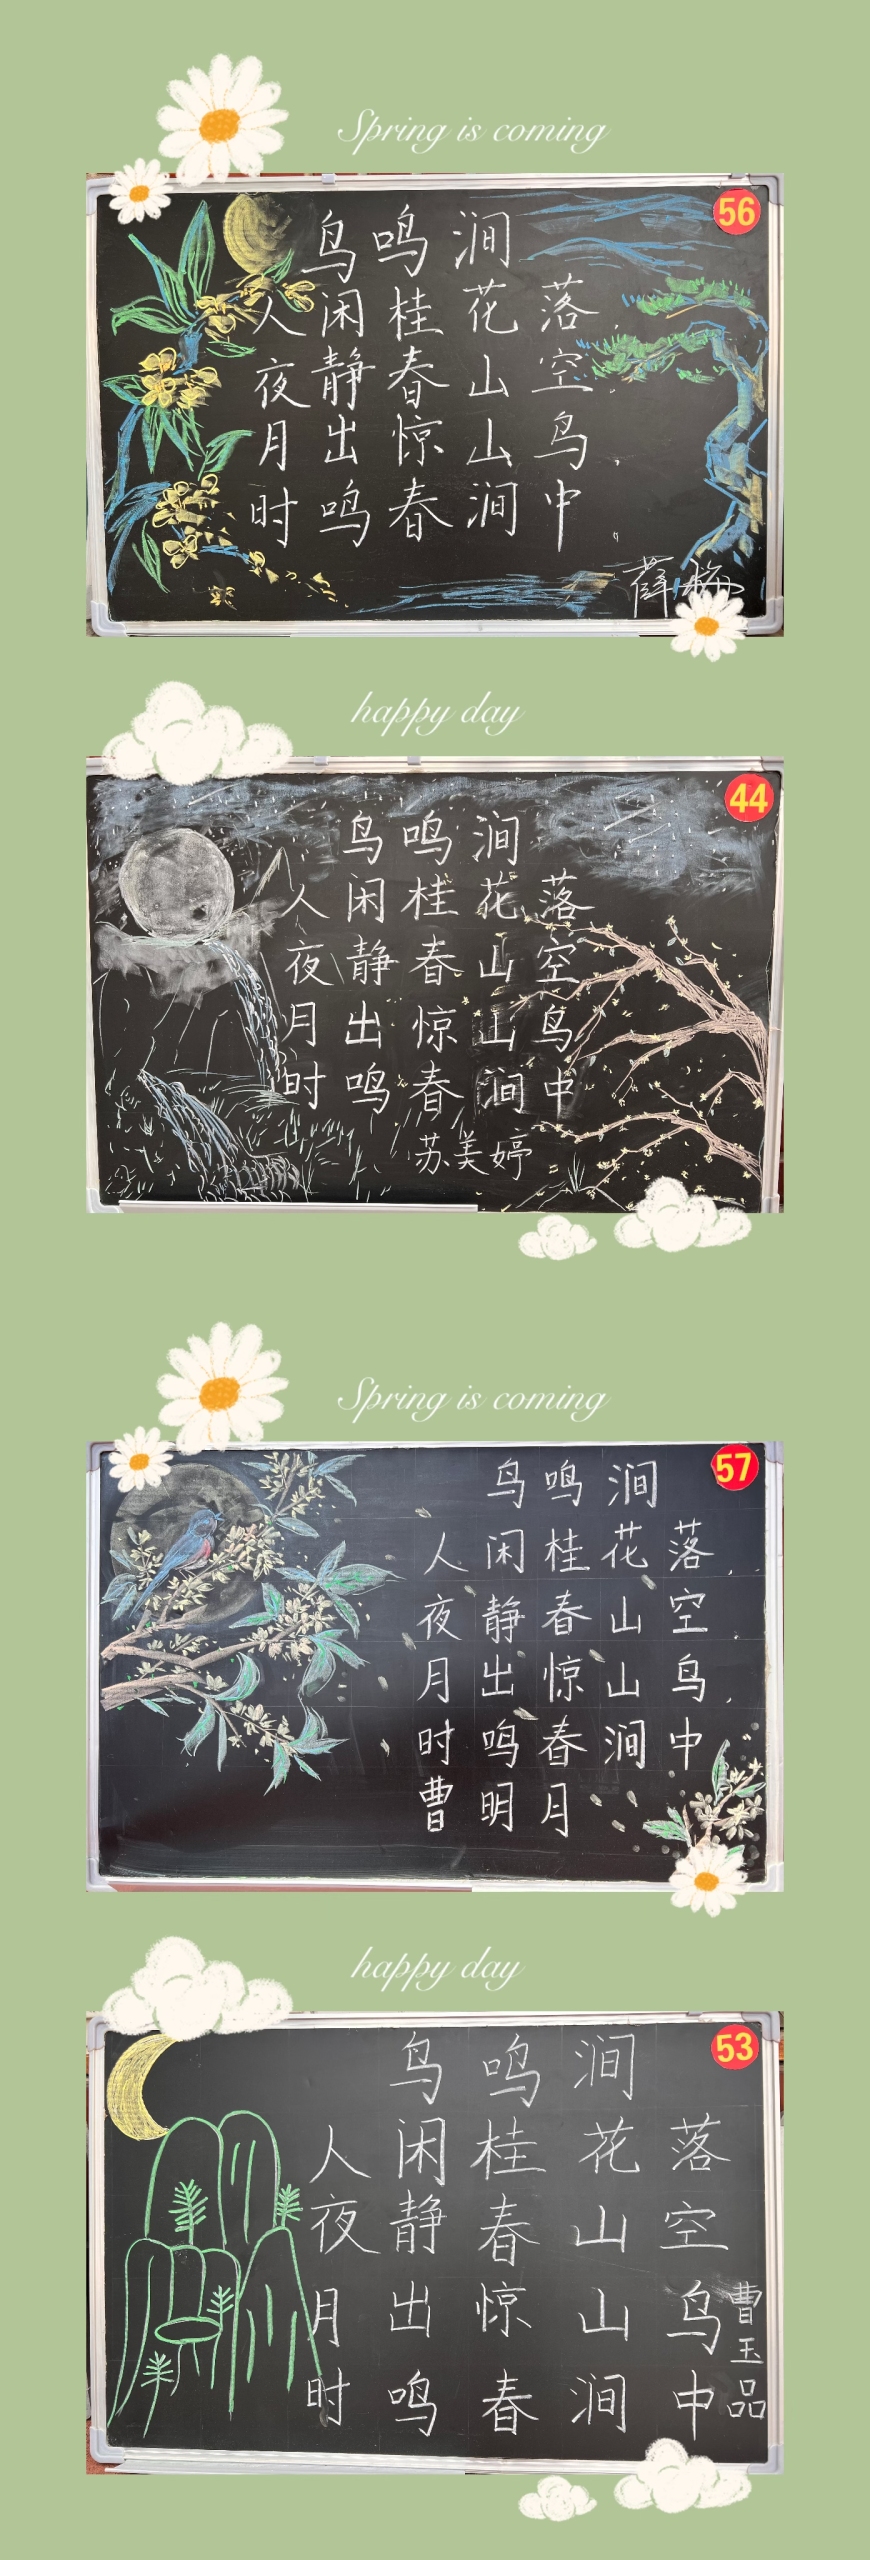 Spring is coming
56
鸟鸣涧
人闲桂花落
夜静春山空
月出惊山鸟
时鸣春涧中
薛
happy day
44
鸟鸣涧
人闲桂花落
夜静春山空
月出惊山鸟
时鸣春涧中
苏美婷
Spring is coming
57
鸟鸣涧
人闲桂花落,
夜静春山空
月出惊山鸟,
时鸣春涧中
曹明月
happy day
53
鸟鸣涧
人闲桂花落
夜静春山空
月出惊山鸟
时鸣春涧中
曹玉品